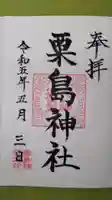 奉拝
粟島神社
令和五年五月三日